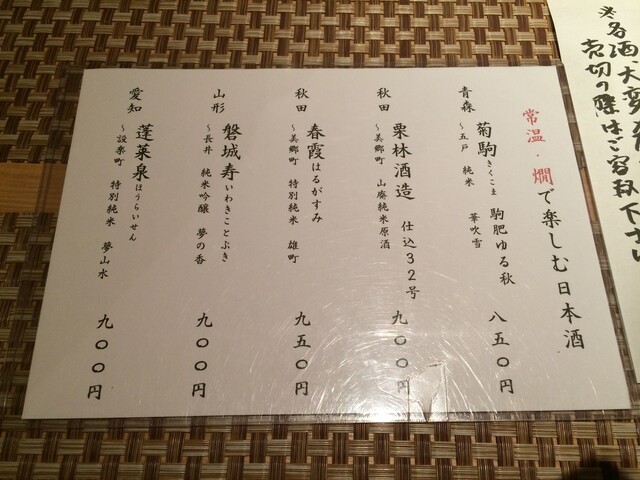 ※各酒、大変
売切の際はご容赦下さい
常温・燗で楽しむ日本酒
青森 菊駒きくこま 駒肥ゆる秋 八五〇円
～五戸 純米 華吹雪
秋田 栗林酒造 仕込32号 九〇〇円
～美郷町 山廃純米原酒
秋田 春霞はるがすみ 九五〇円
～美郷町 特別純米 雄町
山形 磐城寿いわきことぶき 九〇〇円
～長井 純米吟醸 夢の香
愛知 蓬莱泉ほうらいせん 九〇〇円
～設楽町 特別純米 夢山水